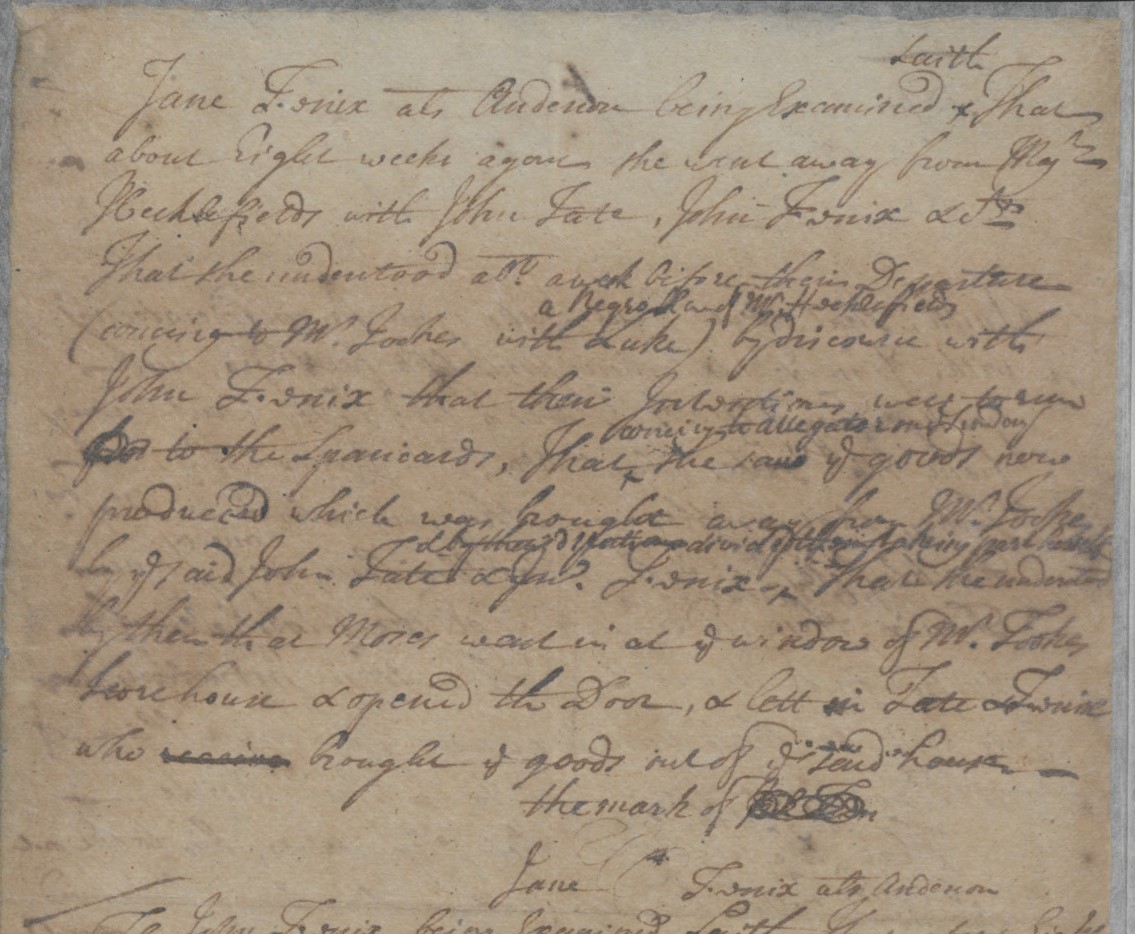 Saith
Jane Fenix als Anderson being Examined & That
about Eight weeks agone she went away from Majr
Hecklefields with John Tate, John Fenix &c
That she understood abt a week before their Departure
a Negro of Mr. Hecklefields
(coming to Mr. Fookes with Luke) by discourse with
John Fenix that their Intentions were to run
coming to Allegator on Sunday
to the Spaniards, That she saw ye goods now
produced which was brought away from Mr. Fookes
& by their division of them taking
by ye said John Tate & Jno. Fenix, That she understood
by them that Moses went in at ye window of Mr. Fookes
Storehouse & opened the Door, & lett in Tate & Fenix
who brought ye goods out of ye said house
the mark of
Jane Fenix als Anderson
John Fenix being Examined Saith